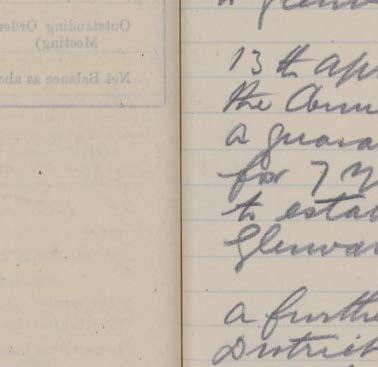 Outstanding Order
Meeting)
Net Balance as abo
a glenwa
13th apr
the Comm
a guara
for 7 y
to estab
Glenwar
a furthe
District